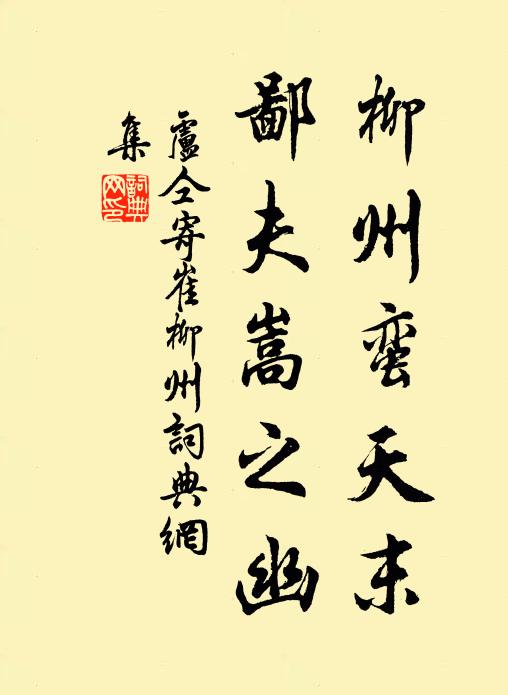 柳州蛮天末
鄙夫嵩之幽
盧仝寄崔柳州詞典網
集
詞典
网印